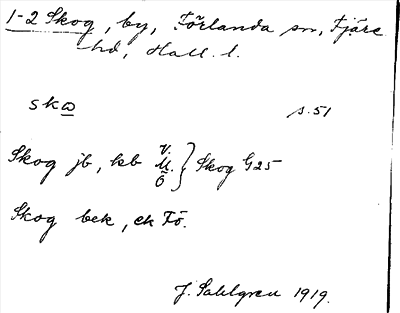 1-2 Skog, by, Förlanda sn, Fjäre
hd, Hall. l.
sko s. 51
Skog jb, kb V. M. Ö } Skog G 25
Skog bek, ek Fö.
J. Sahlgren 1919.